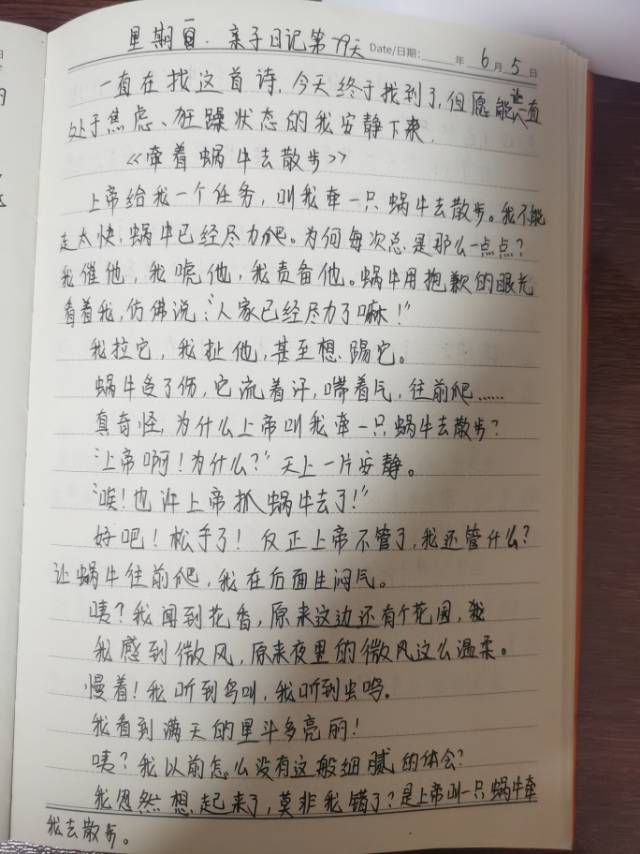 星期日. 亲子日记第79天 Date/日期: 年 6月 5日
一直在找这首诗, 今天终于找到了, 但愿能让一直
处于焦虑、狂躁状态的我安静下来.
《牵着蜗牛去散步》
上帝给我一个任务, 叫我牵一只蜗牛去散步。我不能
走太快, 蜗牛已经尽力爬。为何每次总是那么一点点?
我催他, 我唬他, 我责备他。蜗牛用抱歉的眼光
看着我, 仿佛说:"人家已经尽力了嘛!"
我拉它, 我扯他, 甚至想踢它。
蜗牛受了伤, 它流着汗, 喘着气, 往前爬……
真奇怪, 为什么上帝叫我牵一只蜗牛去散步?
"上帝啊! 为什么?" 天上一片安静。
"唉! 也许上帝抓蜗牛去了!"
好吧! 松手了! 反正上帝不管了, 我还管什么?
让蜗牛往前爬, 我在后面生闷气。
咦? 我闻到花香, 原来这边还有个花园,
我感到微风, 原来夜里的微风这么温柔。
慢着! 我听到鸟叫, 我听到虫鸣。
我看到满天的星斗多亮丽!
咦? 我以前怎么没有这般细腻的体会?
我忽然想起来了, 莫非我错了? 是上帝叫一只蜗牛牵
我去散步。